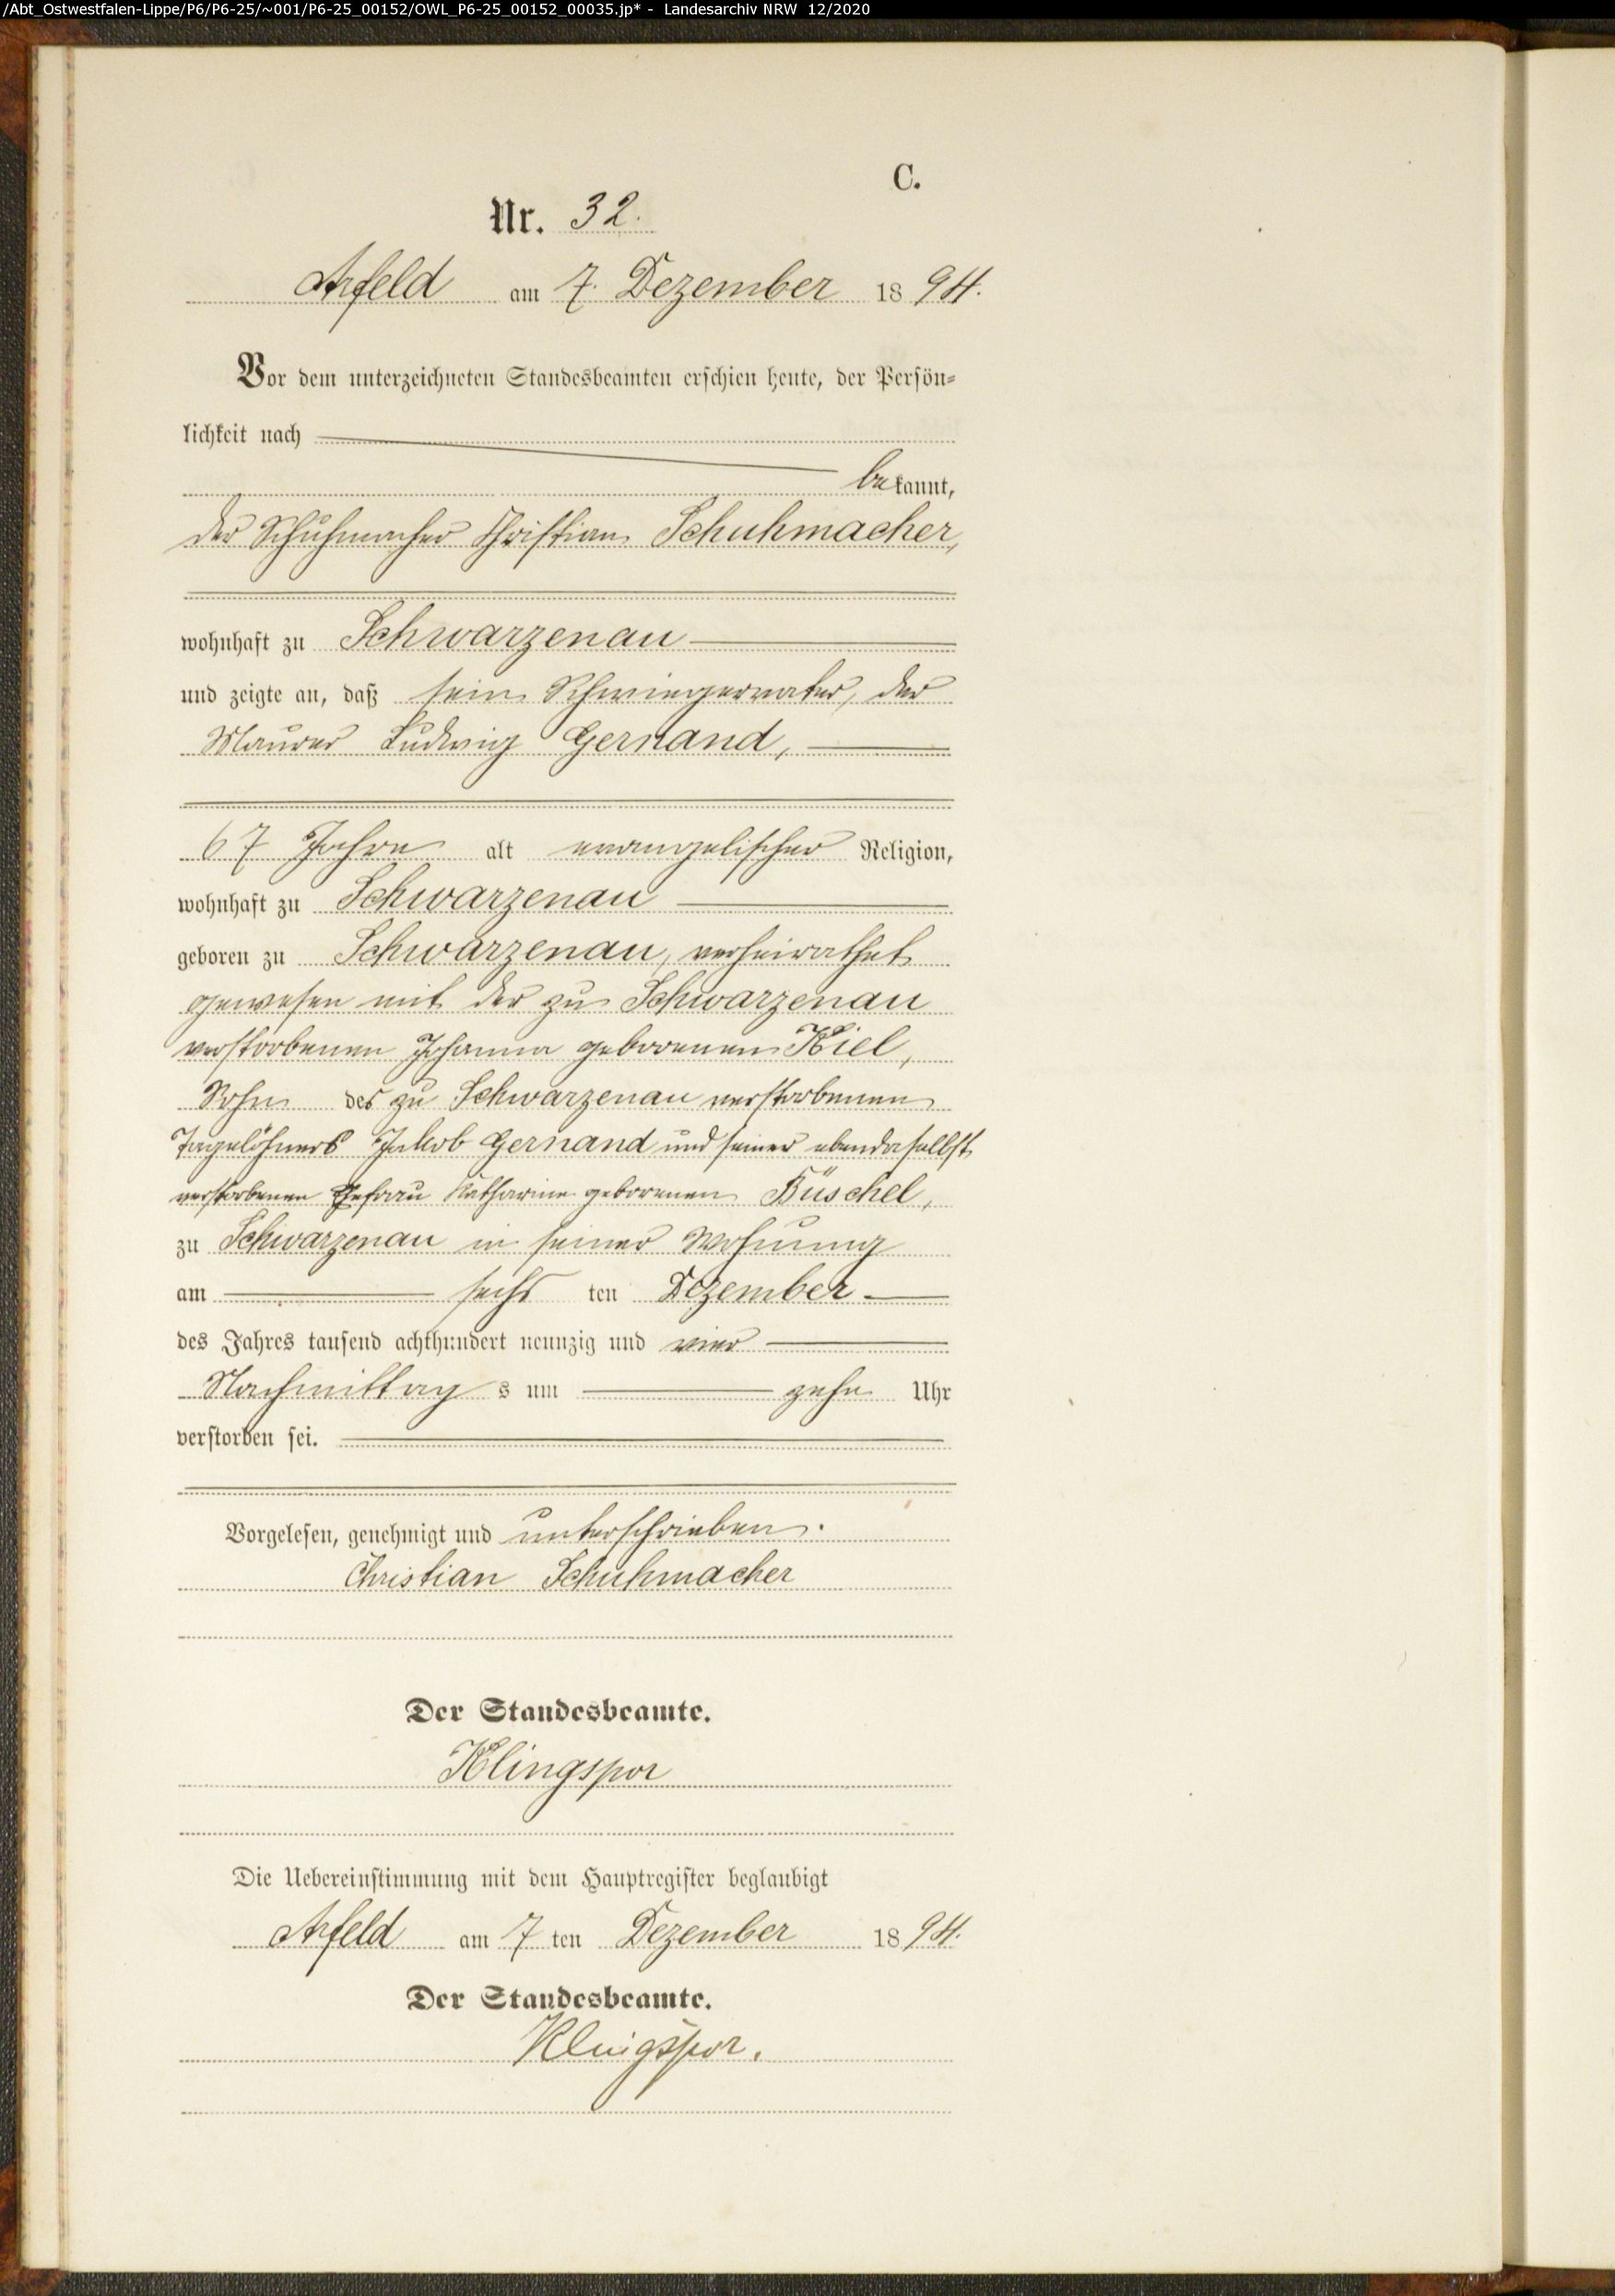 /Abt_Ostwestfalen-Lippe/P6/P6-25/~001/P6-25_00152/OWL_P6-25_00152_00035.jp* - Landesarchiv NRW 12/2020
C.
Nr. 32.
Arfeld am 7. Dezember 1894.
Vor dem unterzeichneten Standesbeamten erschien heute, der Persön-
lichkeit nach
bekannt,
der Schuhmacher Christian Schuhmacher,
wohnhaft zu Schwarzenau
und zeigte an, daß sein Schwiegervater, der
Maurer Ludwig Gernand,
67 Jahre alt evangelischer Religion,
wohnhaft zu Schwarzenau
geboren zu Schwarzenau, verheirathet
gewesen mit der zu Schwarzenau
verstorbenen Johanna geborenen Kiel,
Sohn des zu Schwarzenau verstorbenen
Tagelöhners Jakob Gernand und seiner ebendaselbst
verstorbenen Ehefrau Katharine geborenen Büschel,
zu Schwarzenau in seiner Wohnung
am sechs ten Dezember
des Jahres tausend achthundert neunzig und vier
Nachmittags um zehn Uhr
verstorben sei.
Vorgelesen, genehmigt und unterschrieben.
Christian Schuhmacher
Der Standesbeamte.
Klingspor
Die Uebereinstimmung mit dem Hauptregister beglaubigt
Arfeld am 7 ten Dezember 1894.
Der Standesbeamte.
Klingspor.